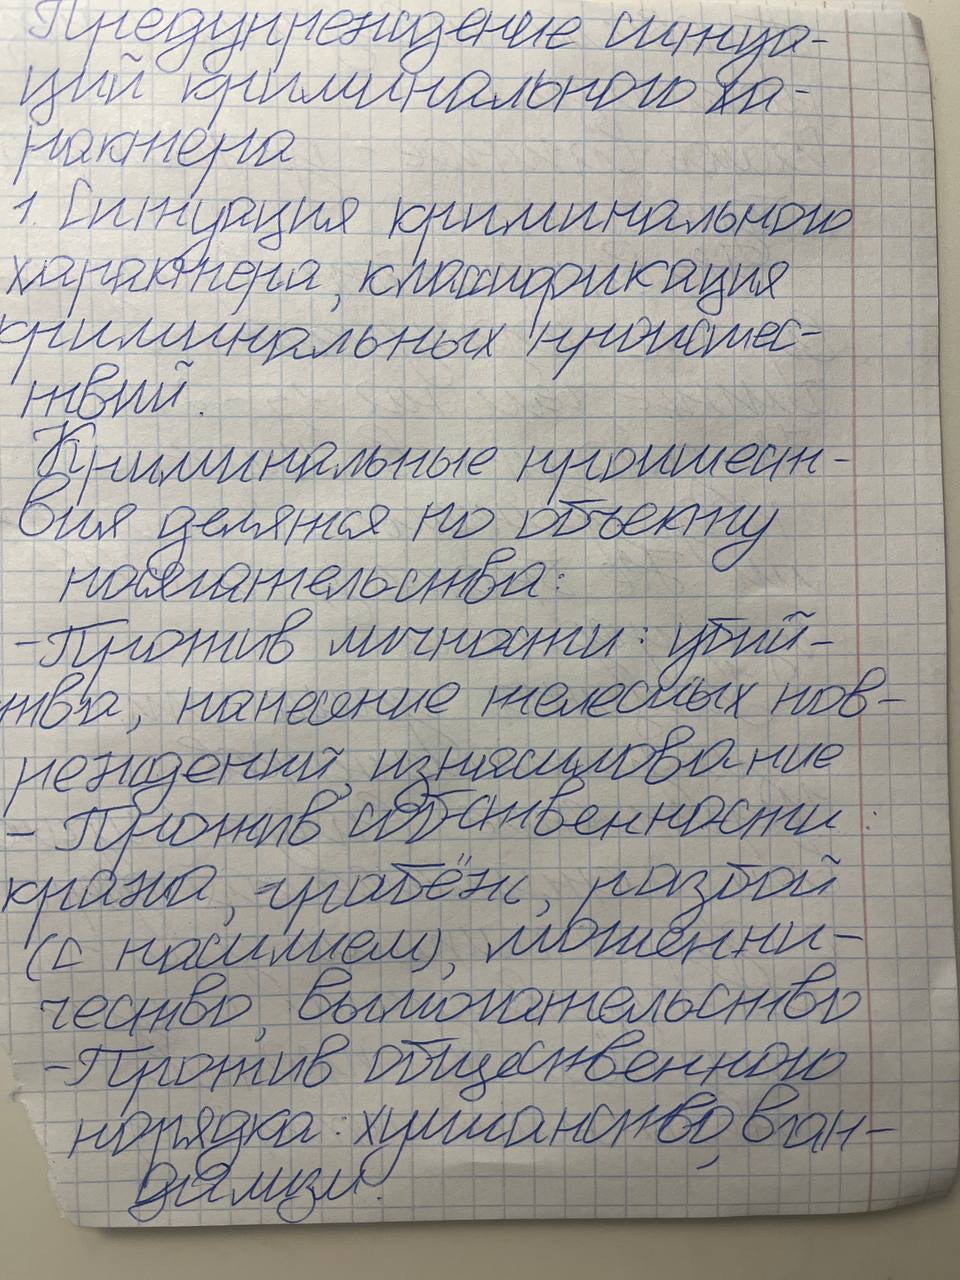 Предупреждение ситуа-
ций криминального ха-
рактера
1. Ситуация криминального
характера, классификация
криминальных происшес-
твий.
Криминальные происшест-
вия делятся по объекту
посягательства:
- Против личности: убий-
тва, нанесение телесных пов-
реждений, изнасилование
- Против собственности:
кража, грабёж, разбой
(с насилием), мошенни-
чество, вымогательство
- Против общественного
порядка: хулиганство, ван-
дализм.